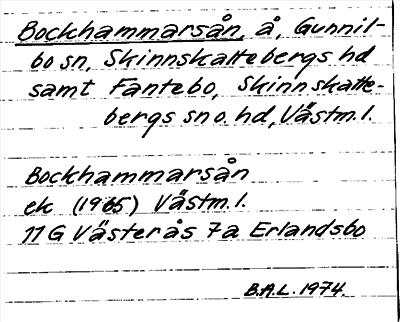 Bockhammarsån, å, Gunnil-
bo sn, Skinnskattebergs hd
samt Fantebo, Skinnskatte-
bergs sn o. hd, Västm.l.
Bockhammarsån
ek (1965) Västm.l.
11 G Västerås 7a Erlandsbo
B.A.L. 1974.